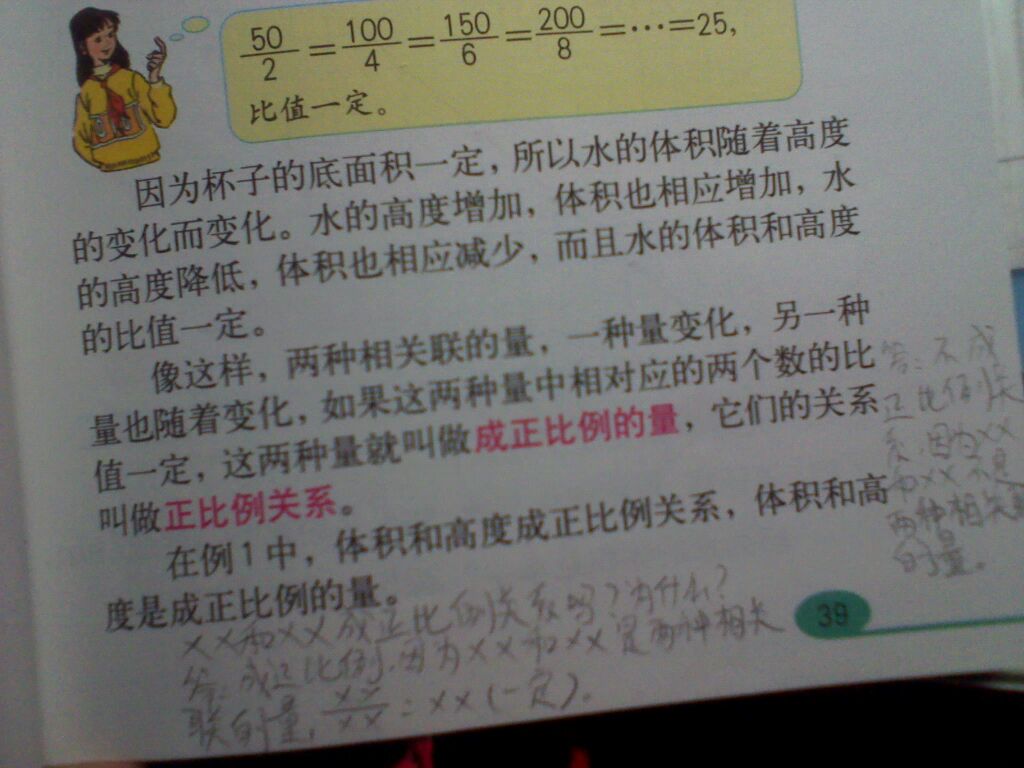 50/2=100/4=150/6=200/8=…=25,
比值一定。
因为杯子的底面积一定，所以水的体积随着高度
的变化而变化。水的高度增加，体积也相应增加，水
的高度降低，体积也相应减少，而且水的体积和高度
的比值一定。
像这样，两种相关联的量，一种量变化，另一种
量也随着变化，如果这两种量中相对应的两个数的比
值一定，这两种量就叫做成正比例的量，它们的关系
叫做正比例关系。
在例1中，体积和高度成正比例关系，体积和高
度是成正比例的量。
××和××成正比例关系吗？为什么？
答：成正比例，因为××和××是两种相关
联的量，××/××=××(一定)。
39
答：不成
正比例关
系，因为××
和××不是
两种相关联
的量。